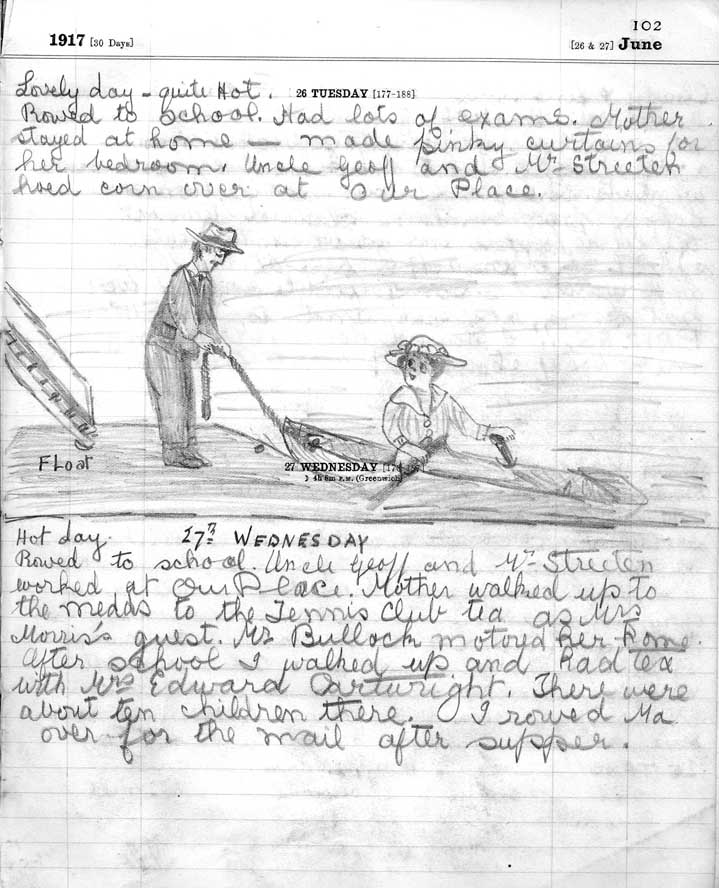 102
1917 [30 Days] [26 & 27] June
Lovely day - quite Hot. 26 TUESDAY [177-188]
Rowed to School. Had lots of exams. Mother
stayed at home — made pinky curtains for
her bedroom. Uncle Geoff and Mr Streeten
hoed corn over at Our Place.
Float
27 WEDNESDAY
4h 8m P.M. (Greenwich)
Hot day. 27th WEDNESDAY
Rowed to school. Uncle Geoff and Mr Streeten
worked at Our Place. Mother walked up to
the medds to the Tennis Club tea as Mrs
Morris's guest. Mr Bullock motored her home.
After school I walked up and had tea
with Mrs Edward Cartwright. There were
about ten children there. I rowed Ma
over for the mail after supper.